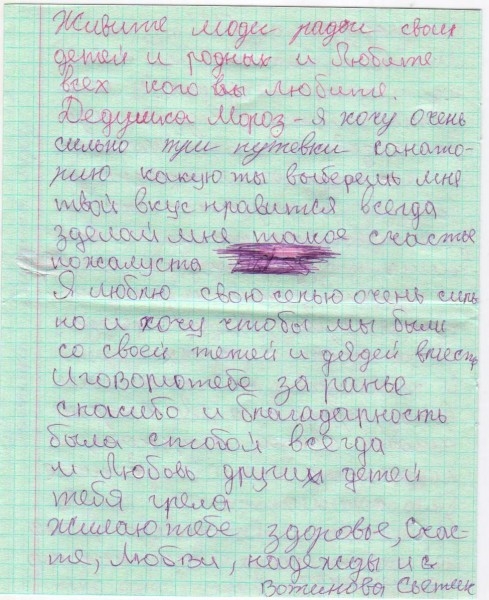 Живите люди ради своих
детей и родных и Любите
всех кого вы любите.
Дедушка Мороз - я хочу очень
сильно три путевки санато-
рию какую ты выберешь мне
твой вкус нравится всегда
зделай мне такое счастье
пожалуста
Я люблю свою семью очень силь
но и хочу чтобы мы были
со своей тетей и дядей вместе
И говорю тебе за ранье
спасибо и благадарность
была стобой всегда
и Любовь других детей
тебя грела
жилаю тебе здоровье, счас-
те, Любви, надежды и